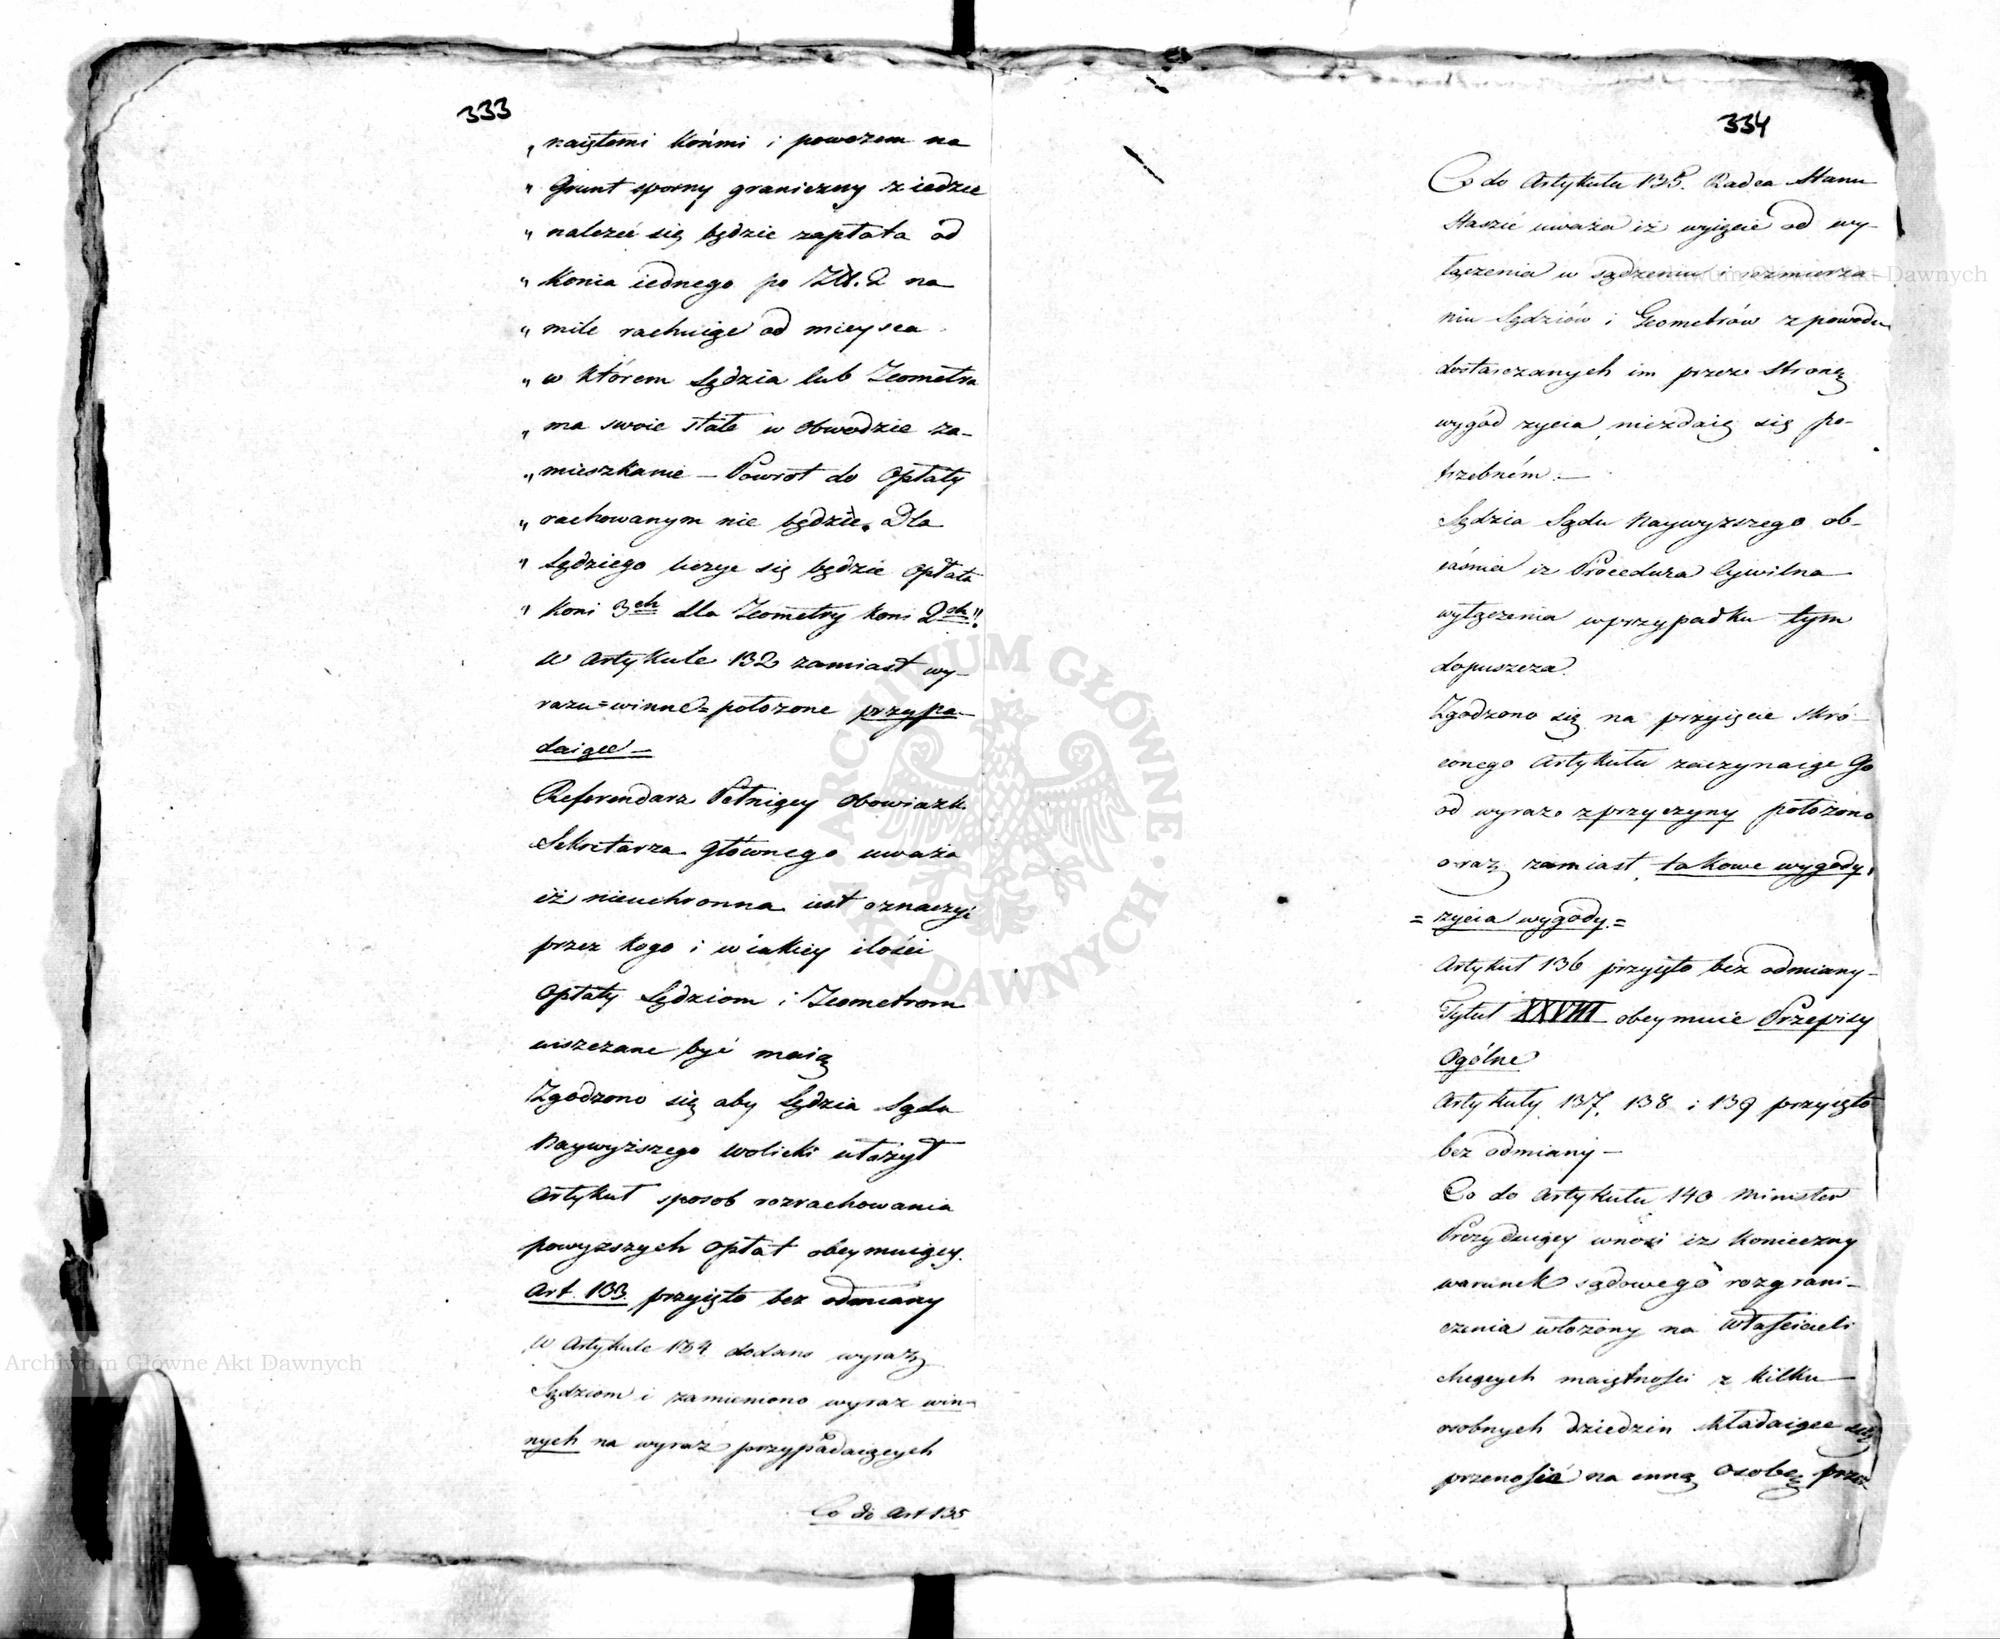 333
„ naiętemi końmi i powozem na
„ Grunt sporny graniczny ziedzie
„ należeć się będzie zapłata od
„ konia iednego po Złł. 2 na
„ mile rachuiąc od mieysca
„ w którem Sędzia lub Jeometra
„ ma swoie stałe w obwodzie za-
„ mieszkanie – Powrot do Opłaty
„ rachowanym nie będzie. Dla
„ Sędziego liczyć się będzie Opłata
„ koni 3ch dla Jeometry koni 2ch"
W Artykule 132 zamiast wy-
razu = winne = położone przypa-
daiące –
Referendarz Pełniący obowiązk.
Sekretarza Głównego uważa
iż nieuchronna iest oznaczyć
przez kogo i w iakiey ilości
Opłaty Sędziom i Jeometrom
uiszczane być maią
Zgodzono się aby Sędzia Sądu
Naywyższego Wolicki ułożył
Artykuł sposob rozrachowania
powyższych Opłat obeymuiący.
Art. 133 przyięto bez odmiany
W Artykule 134 dodano wyraz
Sędziom i zamieniono wyraz win-
nych na wyraz przypadaiących
Co do Art 135
334
Co do Artykułu 135. Radca Stanu
Staszic uważa iż wyięcie od wy-
łączenia w sądzeniu i rozmierza-
niu Sędziów i Geometrów z powodu
dostarczanych im przez Stronę
wygód życia niezdaię się po-
trzebném. –
Sędzia Sądu Naywyższego ob-
iaśnia iż Procedura Cywilna
wyłączenia w przypadku tym
dopuszcza.
Zgodzono się na przyięcie skró-
conego Artykułu zaczynaiąc Go
od wyrazo z przyczyny położono
oraz zamiast takowe wygody,
= życia wygody. =
Artykuł 136 przyięto bez odmiany –
Tytuł XXVIII obeymuie Przepisy
Ogólne
Artykuły 137, 138 i 139 przyięto
bez odmiany –
Co do Artykułu 140 Minister
Prezyduiący wnosi iż konieczny
warunek sądowego rozgrani-
czenia włożony na Właścicieli
chcących maiętności z kilku
osobnych dziedzin składaiące się
przenosić na inną osobę przez
ARCHIWUM GŁÓWNE AKT DAWNYCH
Archiwum Główne Akt Dawnych
Archiwum Główne Akt Dawnych